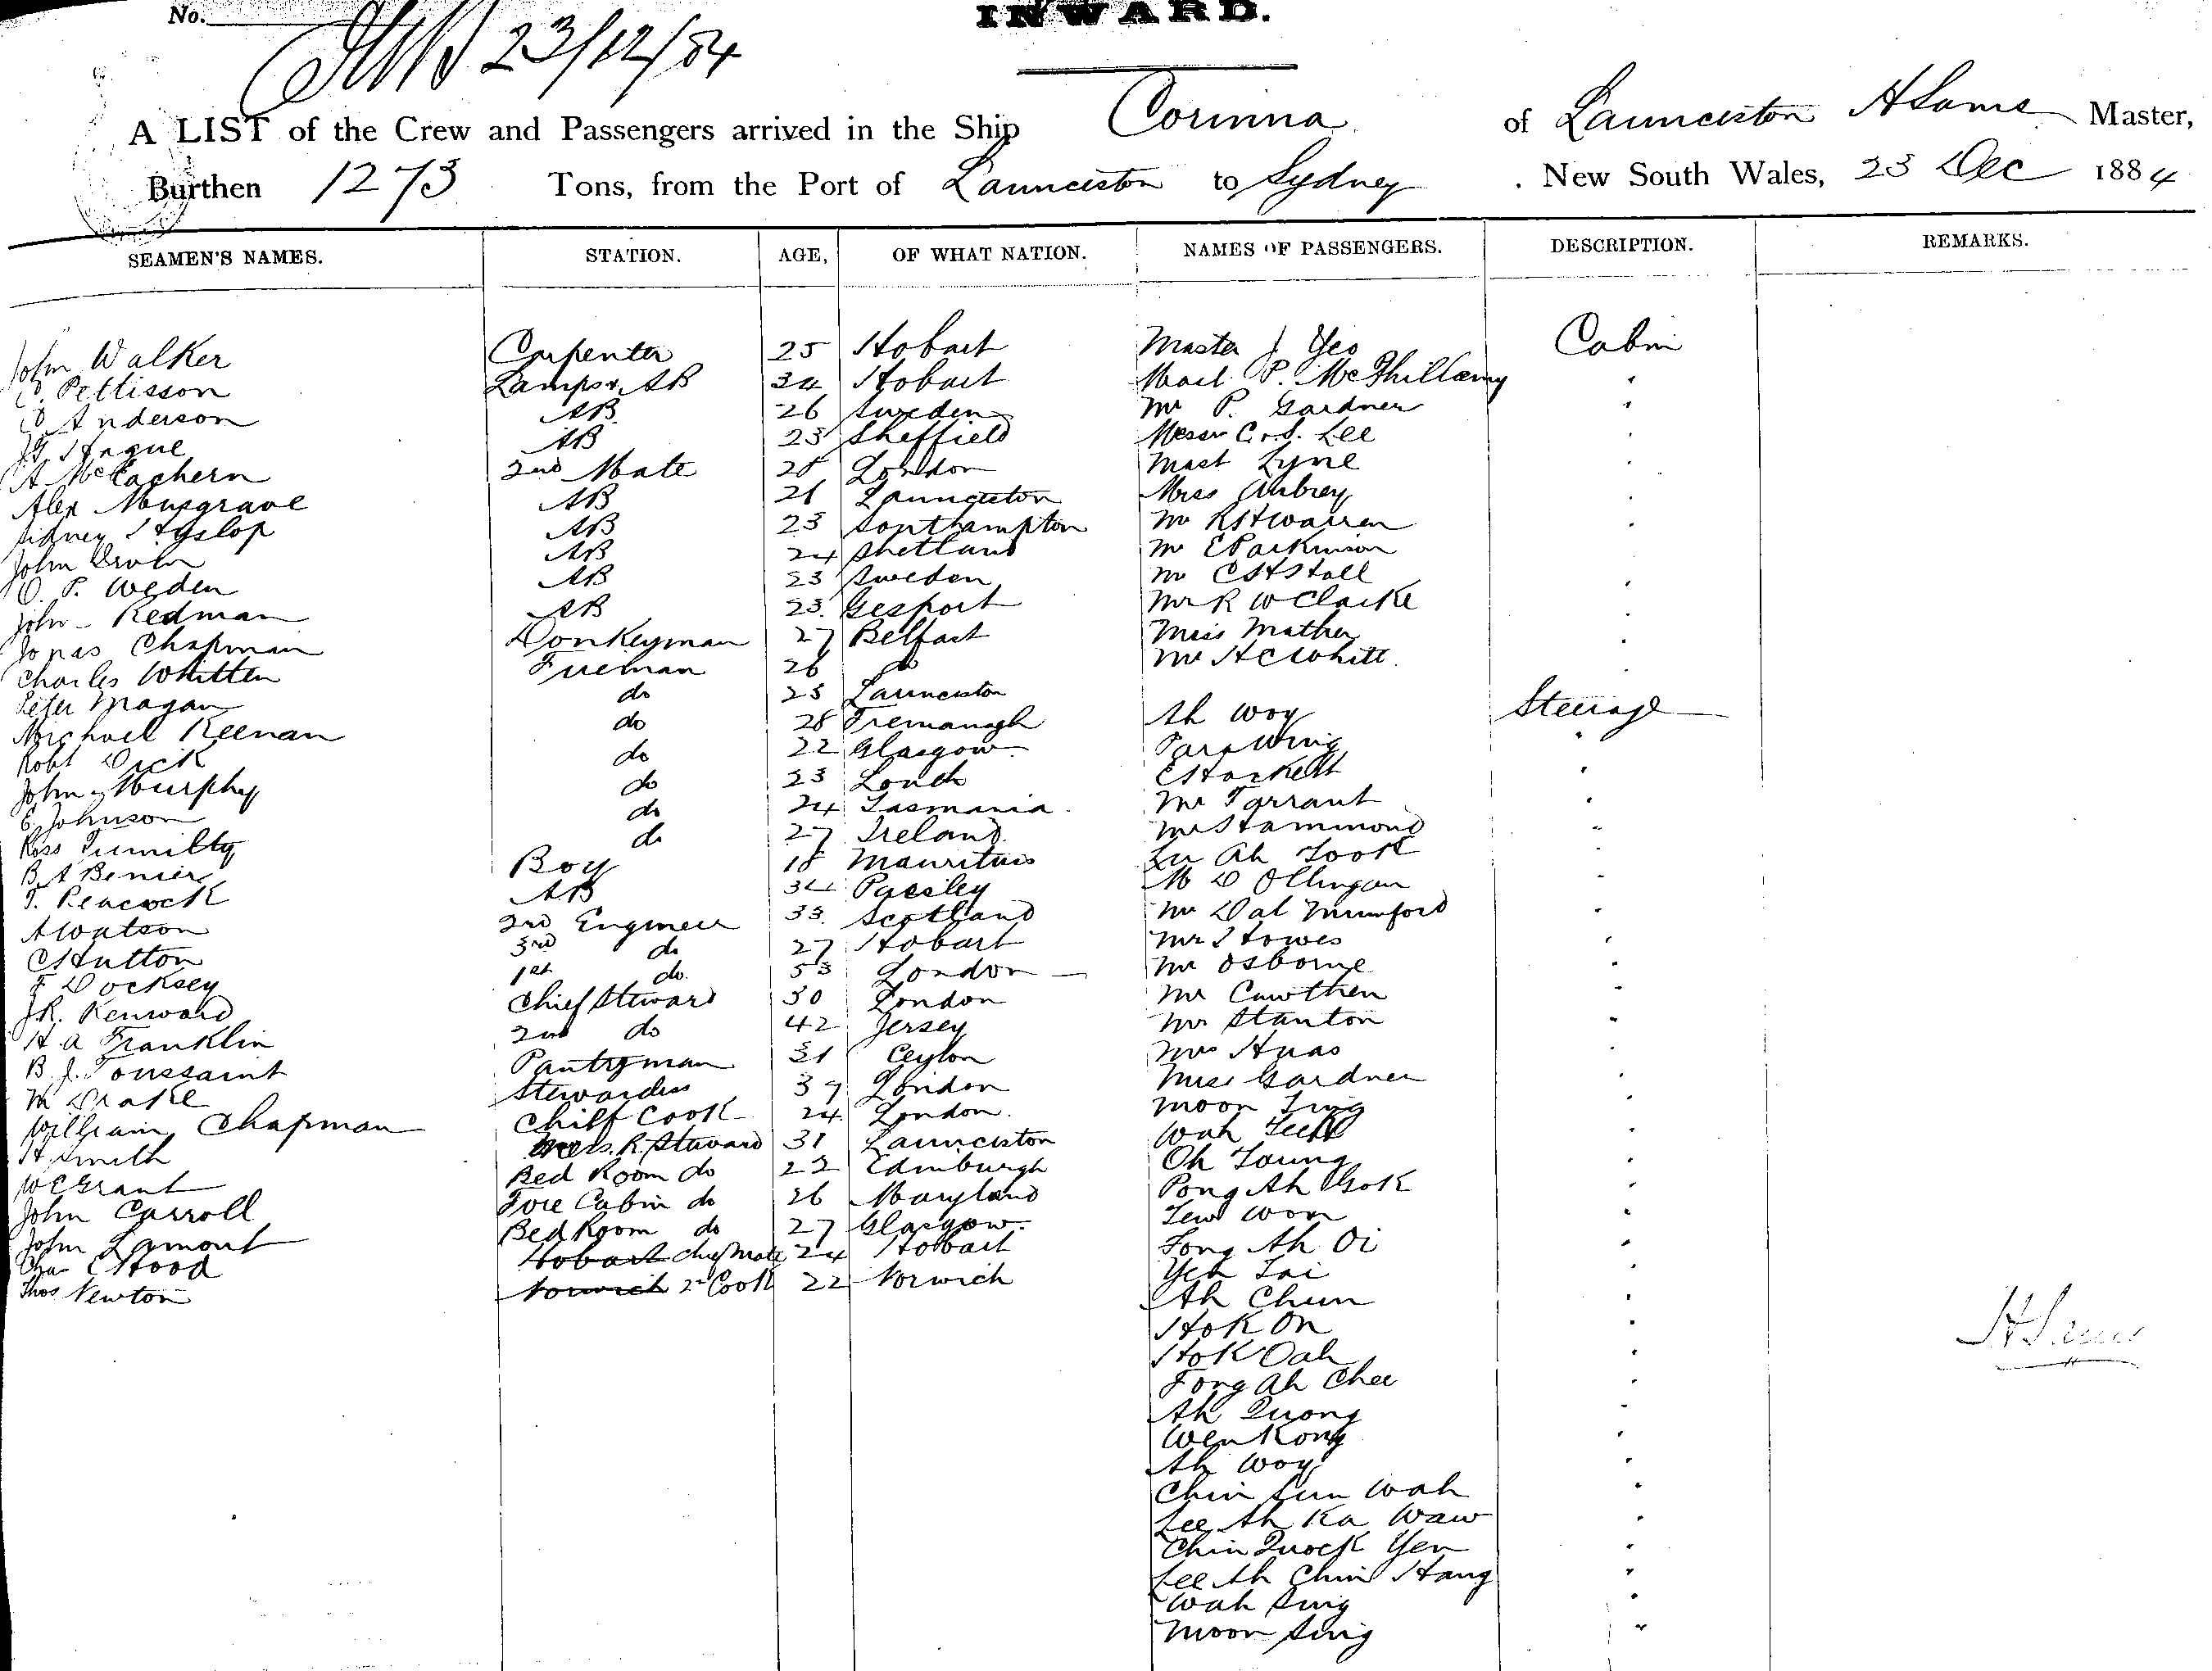 No.
INWARD.
23/12/84
A LIST of the Crew and Passengers arrived in the Ship Corinna of Launceston Master,
Burthen 1273 Tons, from the Port of Launceston to Sydney. New South Wales, 23 Dec 1884
SEAMEN'S NAMES. STATION. AGE, OF WHAT NATION. NAMES OF PASSENGERS. DESCRIPTION. REMARKS.
John Walker Carpenter 25 Hobart Master J Yeo Cabin
Pettisson Lamps & AB 34 Hobart Mast. P. McPhillamy "
Anderson AB 26 Sweden Mr P. Gardner "
Hague AB 23 Sheffield Messrs C. & S. Lee
A McEachern 2nd Mate 28 London Mast Lyne "
Alex Musgrave AB 21 Launceston Miss Aubrey "
Sidney Hyslop AB 23 Southampton Mr R H Warren "
John AB 24 Shetland Mr E Parkinson
O. P. Weden AB 23 Sweden Mr C H Hall "
John Redman AB 23. Gosport Mr R W Clarke "
Jonas Chapman Donkeyman 27 Belfast Miss Mather "
Charles Whitten Fireman 26 do Mr H C White. "
Peter Magan do 25 Launceston
Michael Keenan do 28 Fremanagh Ah Woy Steerage
Robt Dick do 22 Glasgow Wing "
John Murphy do 23 Louth E Hackett "
E. Johnson do 24 Tasmania. Mr Tarrant "
Ross Tumilty do 27 Ireland. Mr Hammond "
B. A Benier Boy 18 Mauritius Lu Ah Took "
T. Peacock AB 34 Paisley M D "
A Watson 2nd Engineer 33. Scotland Mr Dal Mumford "
C Hutton 3rd do 27 Hobart Mr Howes "
F Docksey 1st do. 53 London Mr Osborne "
J.R. Kenward Chief Steward 30 London Mr Cawthen "
H. A Franklin 2nd do 42 Jersey Mr Stanton "
B. J. Toussaint Pantryman 31 Ceylon Mrs Huas "
M Drake Stewardess 39 London Miss Gardner "
William Chapman Chief Cook 24 London. Moon "
H Smith Mess. R. Steward 31 Launceston Wah "
W C Grant Bed Room do 22 Edinburgh Oh Young "
John Carroll Fore Cabin do 26 Maryland Pong Ah Gok "
John Lamont Bed Room do 27 Glasgow. Lew Won "
Chas E Hood Hobart Chief Mate 24 Hobart Fong Ah Oi "
Thos Newton Norwich 2nd Cook 22 Norwich Yeh Lai "
Ah Chun "
Hok On "
Hok Dah "
Fong Ah Chee "
Ah Quong "
Wen Kong "
Ah Woy "
Chin Sun Wah "
Lee Ah Ka Waw "
Chin Quock Yen "
Lee Ah Chin Hang "
Wah Sing "
Moon Sing "